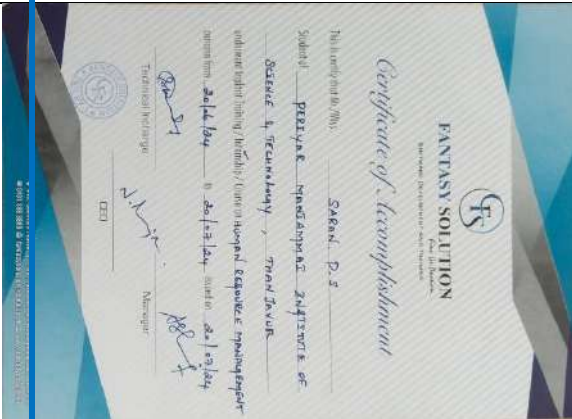 FANTASY SOLUTION
Certificate of Accomplishment
This is certify that Mr./Miss. SARAN D.S
Student of PERIYAR MANIAMMAI INSTITUTE OF
SCIENCE & TECHNOLOGY, THANJAVUR
underwent Inplant Training / Internship / Course on HUMAN RESOURCE MANAGEMENT
from 20/06/24 to 20/07/24 Issued on 20/07/24
Technical Incharge
CEO
Manager